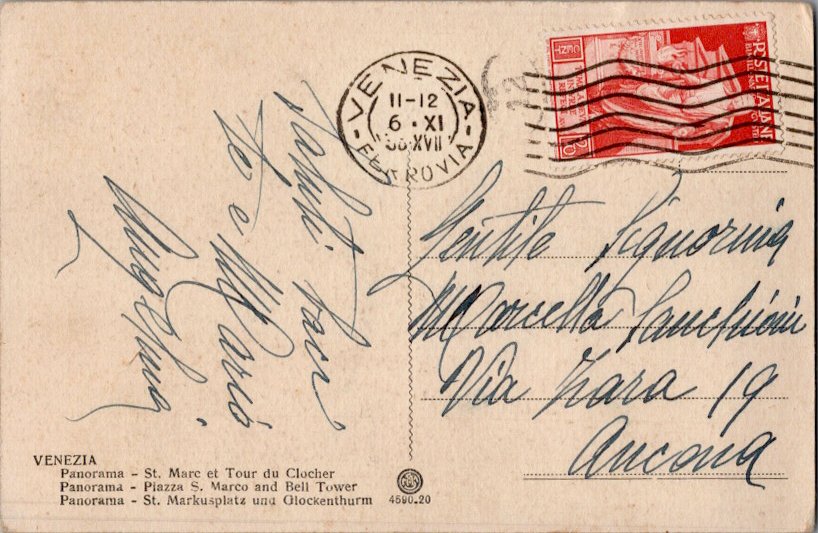 VENEZIA
11-12
6 · XI
38·XVII
- FERROVIA -
POSTE ITALIANE
Saluti baci
te e Mario
Gentile Signorina
Marcella
Via Zara 19
Ancona
VENEZIA
Panorama - St. Marc et Tour du Clocher
Panorama - Piazza S. Marco and Bell Tower
Panorama - St. Markusplatz und Glockenthurm
4590-20